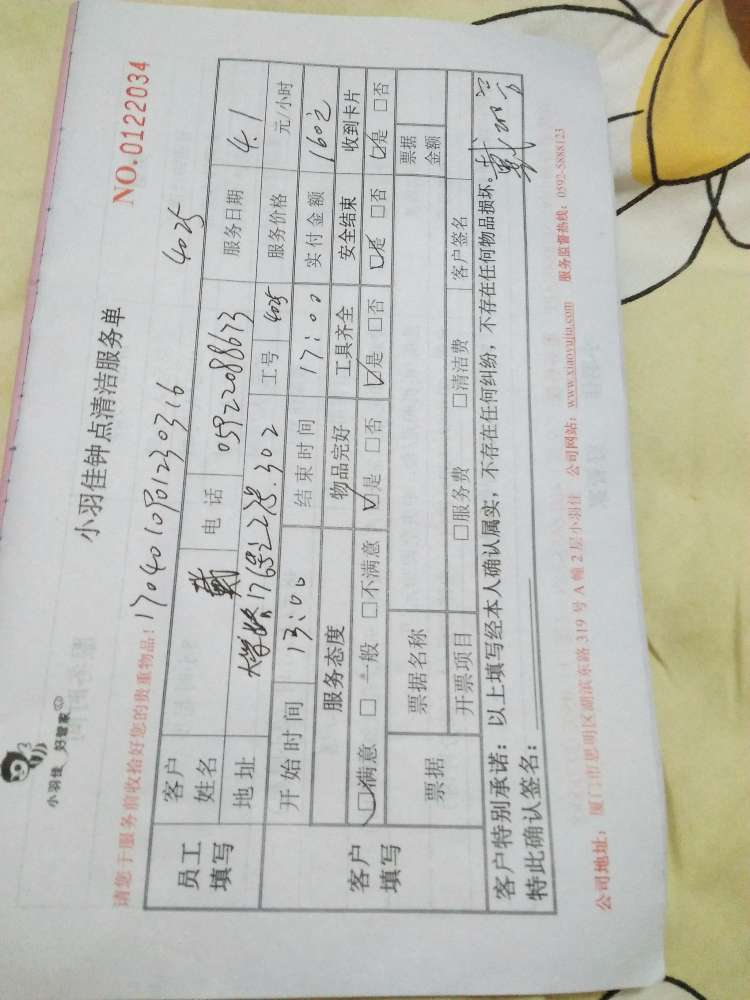 小羽佳 好管家
小羽佳钟点清洁服务单
NO.0122034
请您于服务前收拾好您的贵重物品! 4025
员工填写 客户姓名 戴 电话 05922088673 服务日期 4.1
地址 176号之2 302 工号 4025 服务价格 元/小时
客户填写 开始时间 13:00 结束时间 17:00 实付金额 160元
服务态度 物品完好 工具齐全 安全结束 收到卡片
☑满意 □一般 □不满意 ☑是 □否 ☑是 □否 ☑是 □否 ☑是 □否
票据 票据名称 票据金额
开票项目 □服务费 □清洁费 客户签名
客户特别承诺:以上填写经本人确认属实,不存在任何纠纷,不存在任何物品损坏。
特此确认签名: 戴
公司地址: 厦门市思明区湖滨东路319号A幢2层小羽佳 公司网站: www.xiaoyujia.com 服务监督热线: 0592-5888123